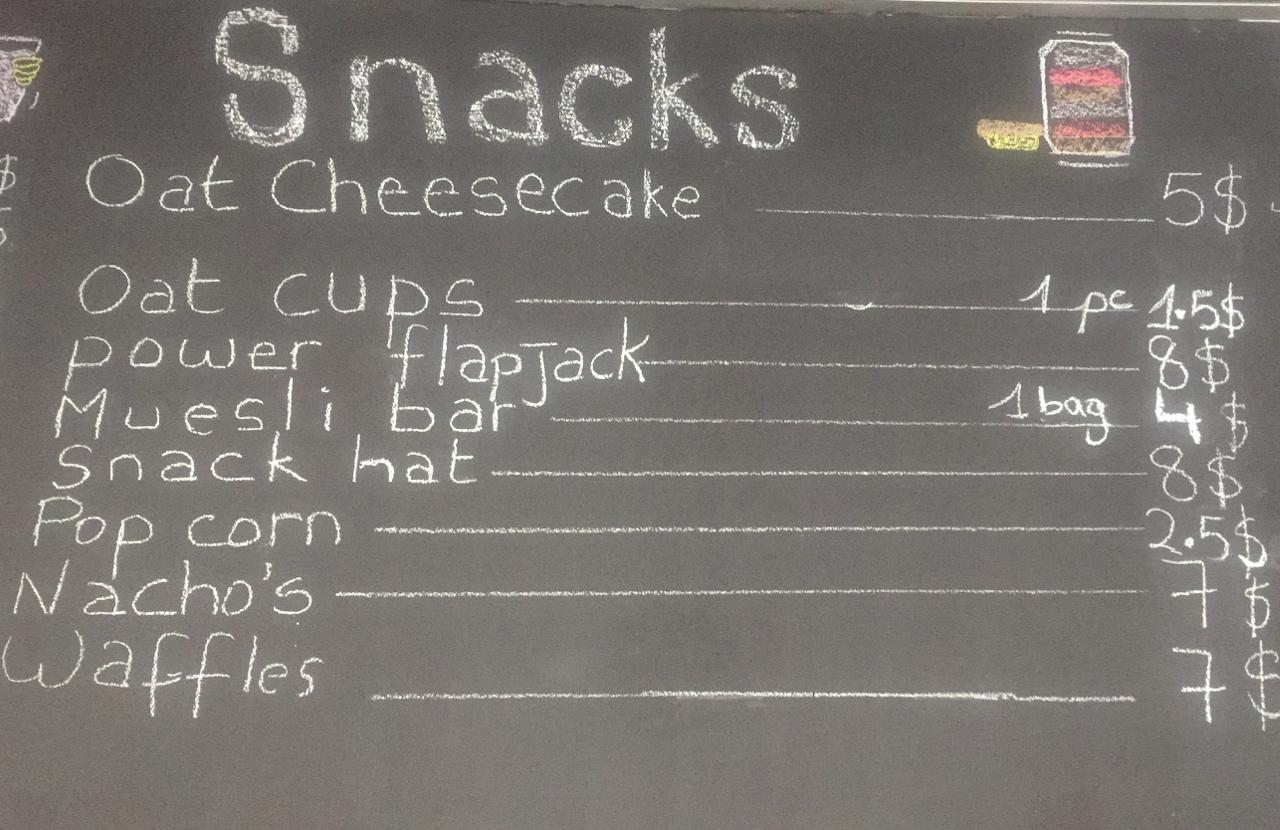 Snacks
Oat Cheesecake 5$
Oat cups 1 pc 1.5$
power flapjack 8$
Muesli bar 1 bag 4 $
Snack hat 8$
Pop corn 2.5$
Nacho's 7 $
Waffles 7 $